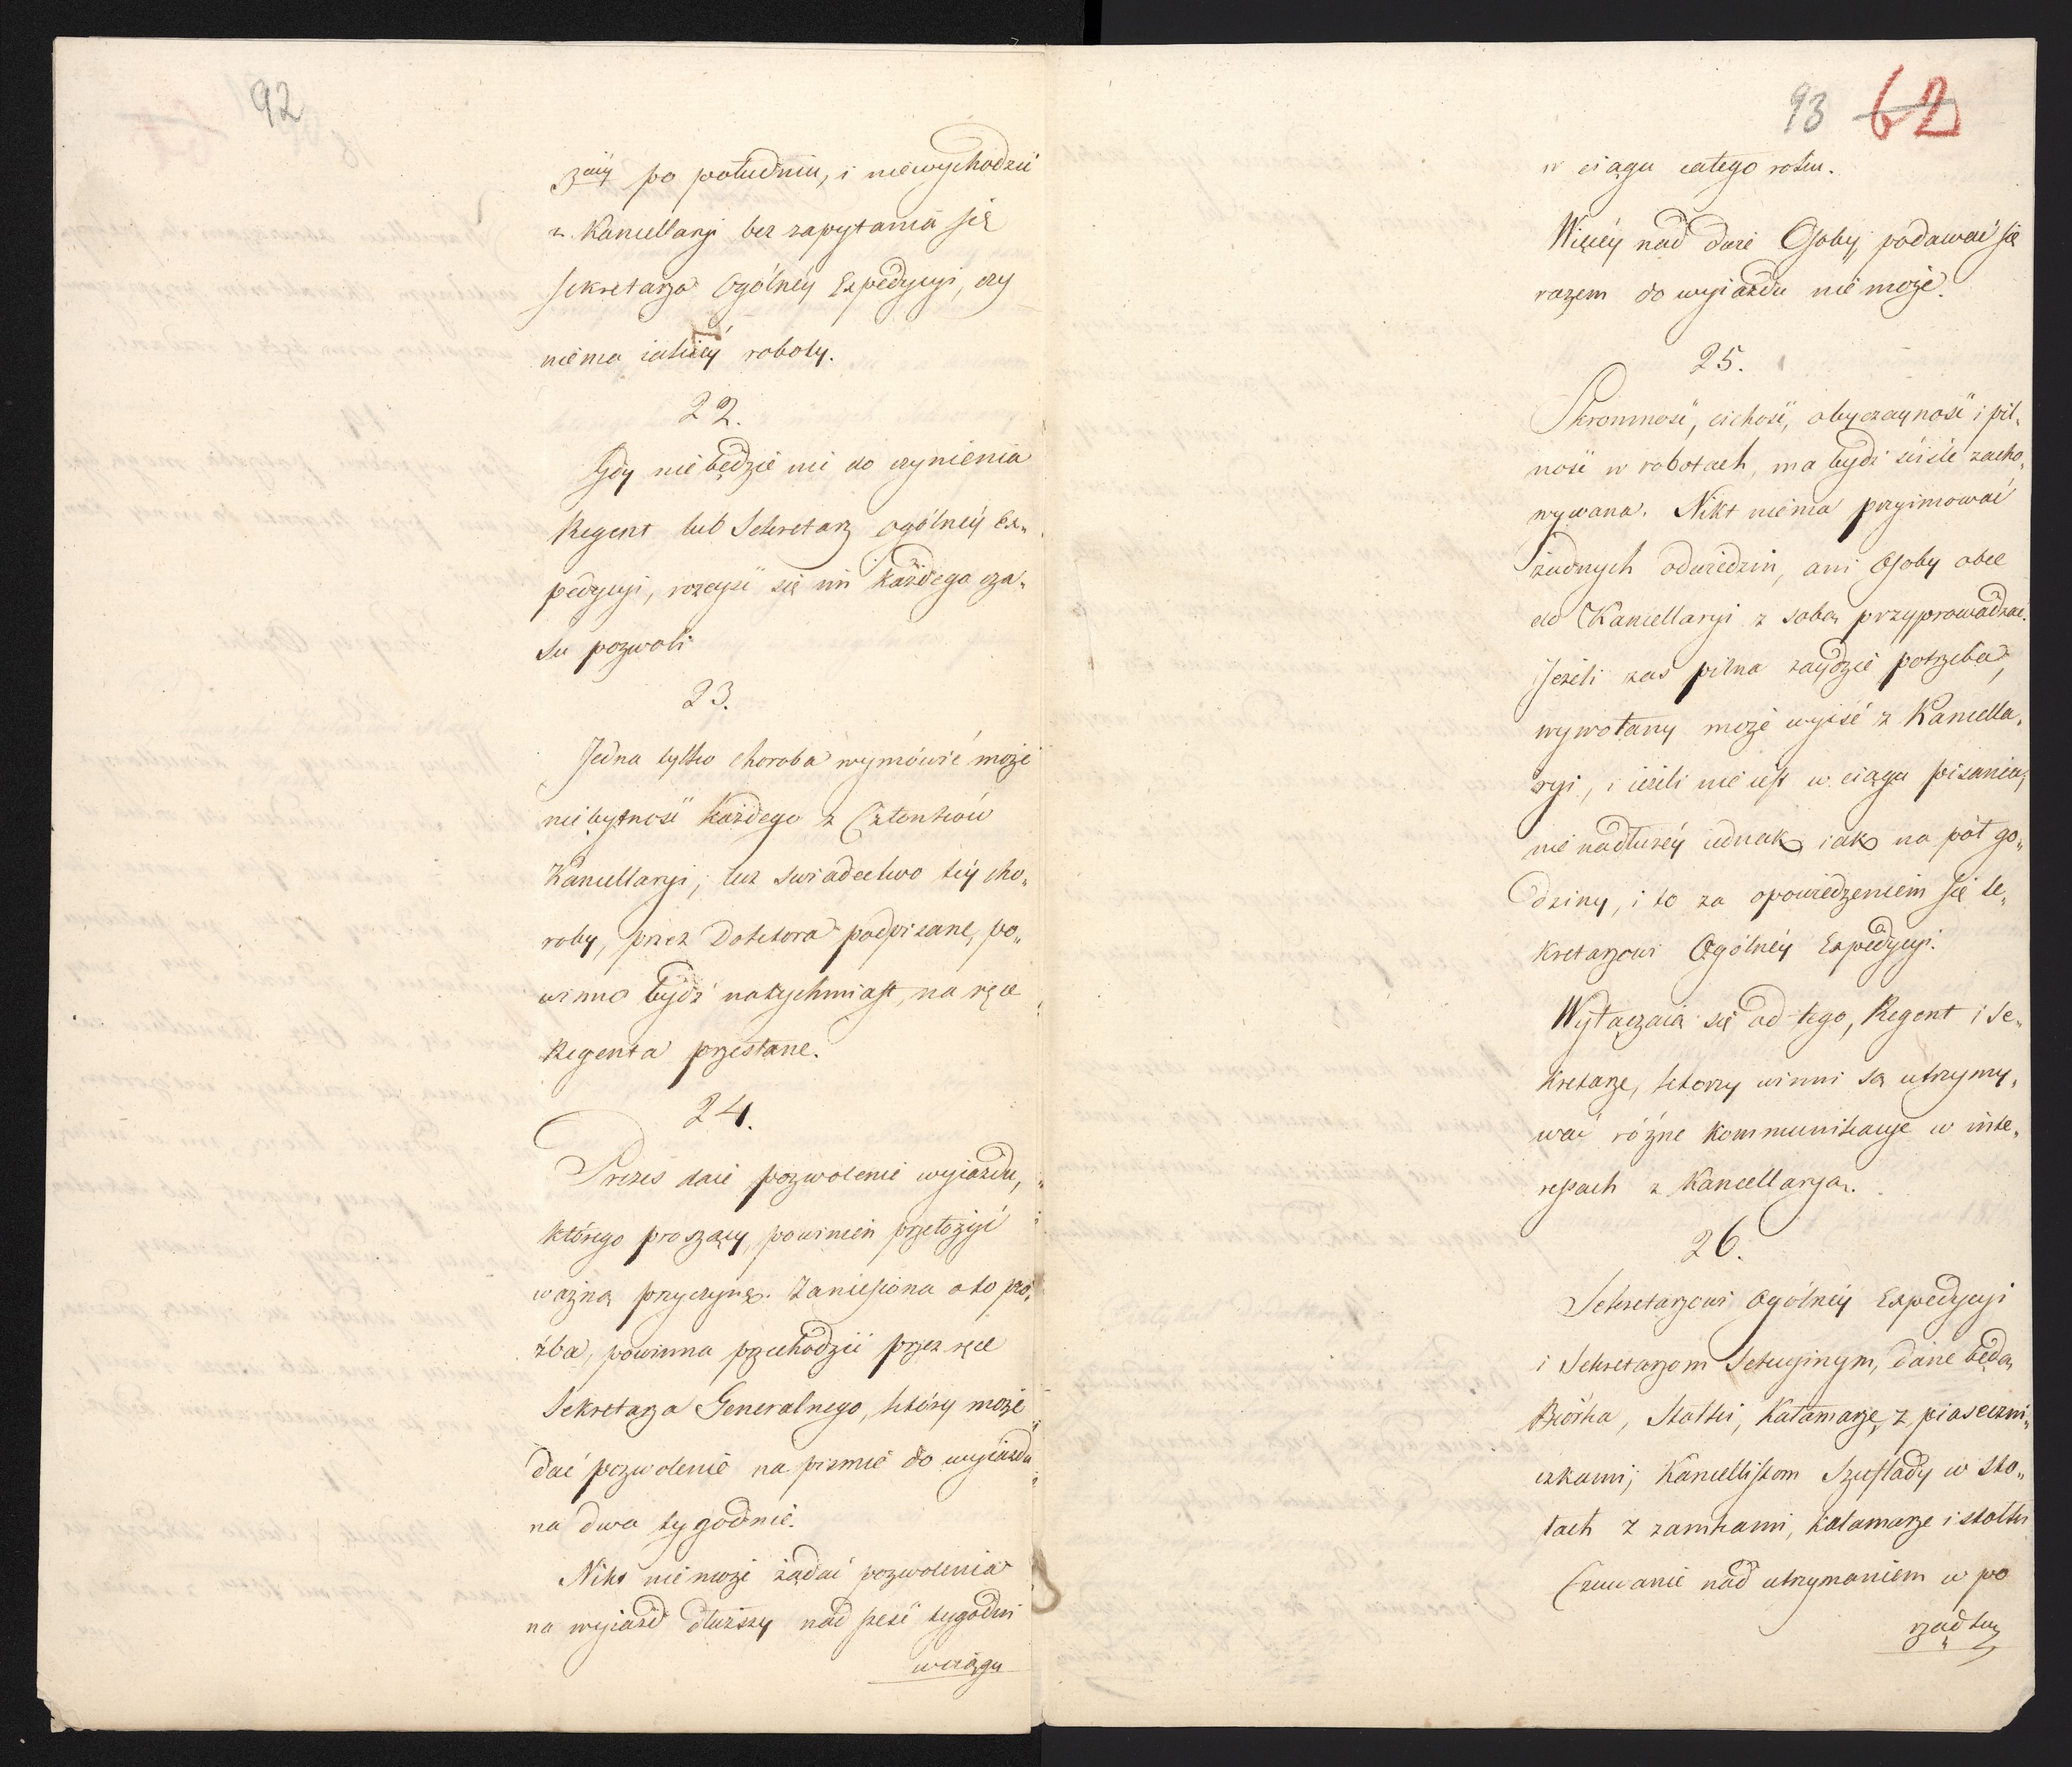 92
3ciéy po południu, i niewychodzić
z Kancellaryi bez zapytania się
Sekretarza Ogólnéy Expedycyi, czy
niéma iakiéy roboty.
22.
Gdy nie będzie nic do czynienia
Regent lub Sekretarz ogólnéy Ex„
pedycyi, rozeyść się im każdego cza„
su pozwoli
23.
Jedna tylko choroba wymówić może
niebytność każdego z Członków
Kancellaryi; lecz świadectwo téy cho„
roby, przez Doktora podpisane, po„
winno bydź natychmiast, na ręce
Regenta przesłane.
24.
Prezes daie pozwolenie wyiazdu,
którego proszący, powinien przełożyć
ważną przyczynę. Zaniesiona oto pro„
źba, powinna przechodzić przez ręce
Sekretarza Generalnego, który może
dać pozwolenie na piśmie do wyiazdu
na dwa tygodnie.
Nikt nie może żądać pozwolenia
na wyiazd dłuższy nad sześć tygodni
w ciągu
93 62
w ciągu całego roku.
Więcéy nad dwie Osoby, podawać się
razem do wyiazdu nie może.
25.
Skromność, cichość, obyczayność i pil„
ność w robotach, ma bydź ściśle zacho„
wywana. Nikt niéma przyimować
żadnych odwiedzin, ani Osoby obce
do Kancellaryi z sobą przyprowadzać.
Jeżeli zaś pilna zaydzie potrzeba,
wywołany może wyiść z Kancella„
ryi, i ieżeli nie iest w ciągu pisania,
nie nadłużéy iednak, iak na pół go„
dziny, i to za opowiedzeniem się Se„
kretarzowi Ogólnéy Expedycyi.
Wyłączaią się od tego, Regent i Se„
kretarze, którzy winni są utrzymy„
wać różne kommunikacye w inte„
ressach z Kancellaryą.
26.
Sekretarzowi Ogólnéy Expedycyi
i Sekretarzom Sekcyinym, dane będą
Biórka, Stołki, Kałamarze, z piaseczni„
czkami; Kancellistom Szuflady w sto„
łach z zamkami, kałamarze i stołki
Czuwanie nad utrzymaniem w po
rządku